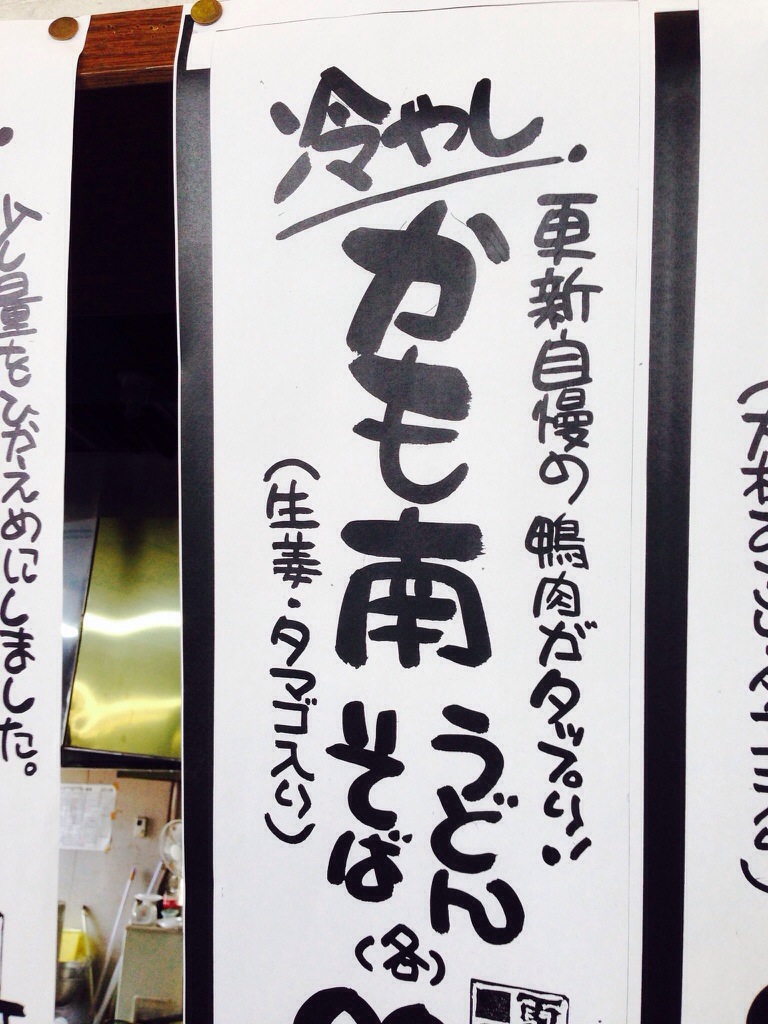 冷やし
更新自慢の鴨肉がタップリ!!
かも南
うどん
そば
(各)
(生姜・タマゴ入り)
少し量をひかえめにしました。